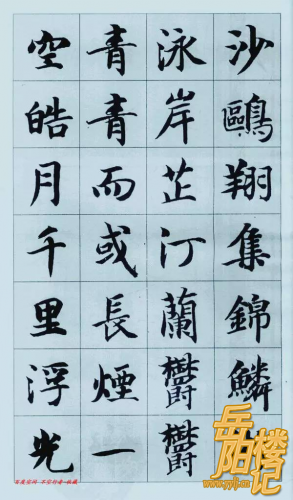 沙鷗翔集錦鱗
泳岸芷汀蘭鬱鬱
青青而或長煙一
空皓月千里浮光
岳阳楼记